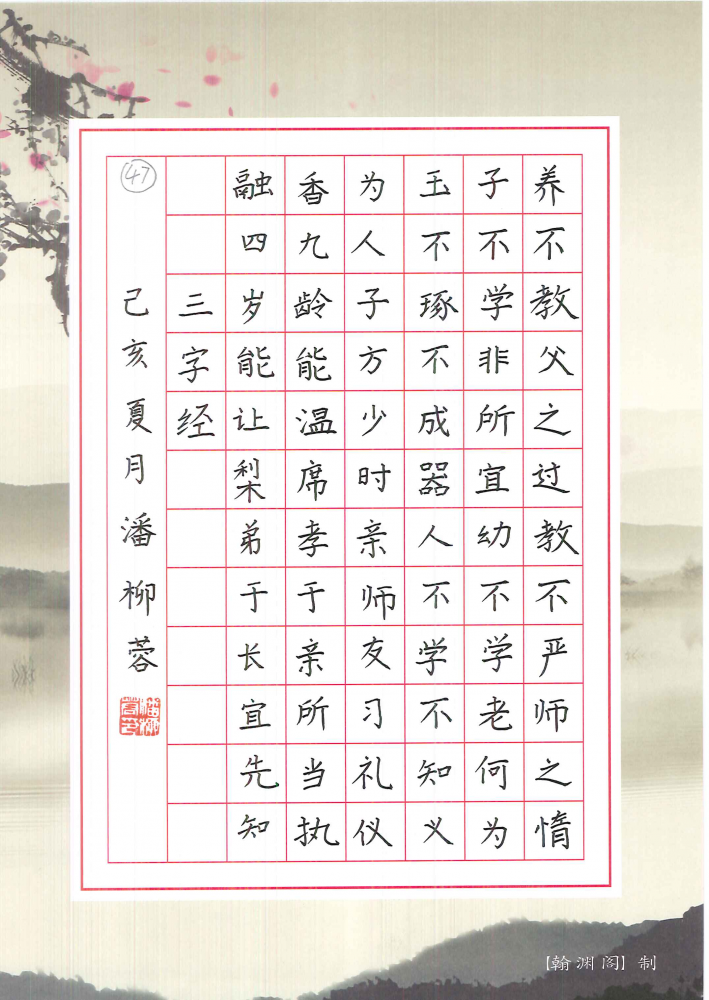 养不教父之过教不严师之惰
子不学非所宜幼不学老何为
玉不琢不成器人不学不知义
为人子方少时亲师友习礼仪
香九龄能温席孝于亲所当执
融四岁能让梨弟于长宜先知
三字经
己亥夏月潘柳蓉
47
【翰渊阁】制